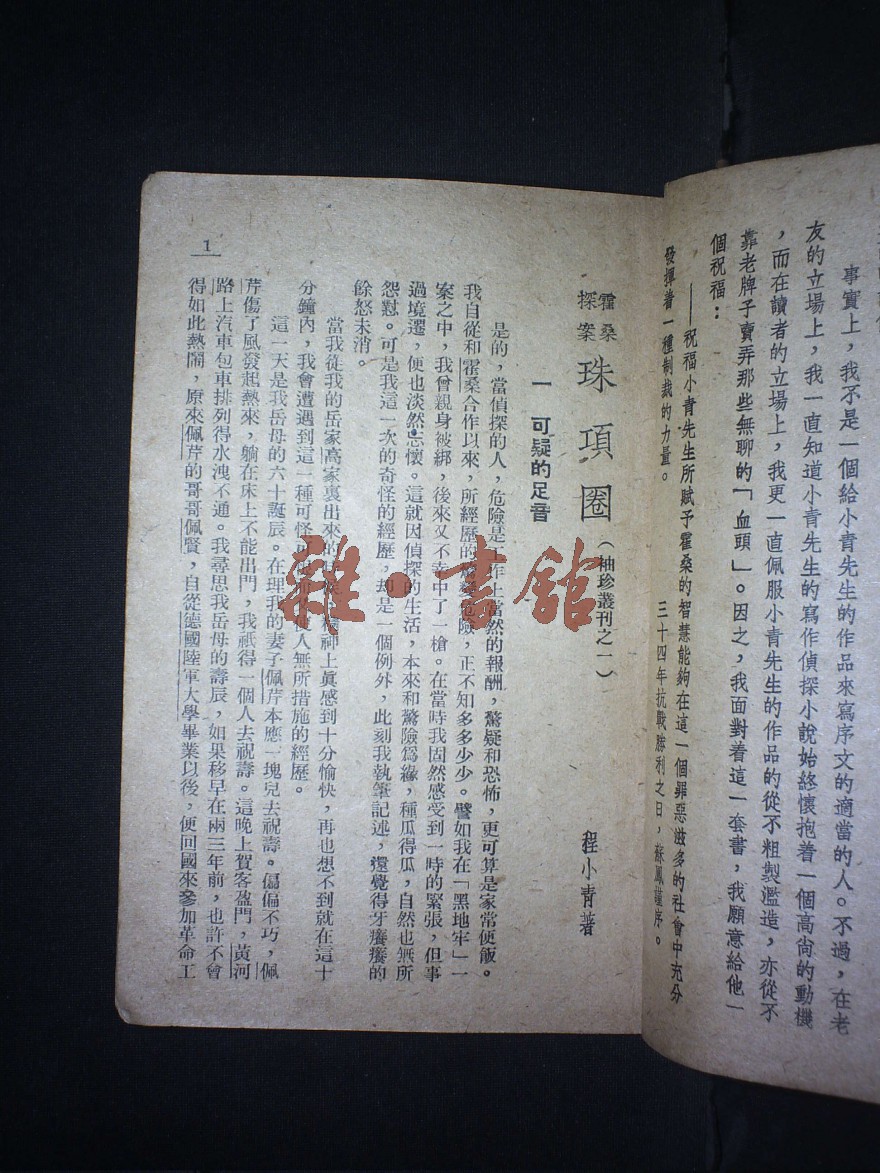 事實上,我不是一個給小青先生的作品來寫序文的適當的人。不過,在老
友的立場上,我一直知道小青先生的寫作偵探小說始終懷抱着一個高尚的動機
,而在讀者的立場上,我更一直佩服小青先生的作品的從不粗製濫造,亦從不
靠老牌子賣弄那些無聊的「血頭」。因之,我面對着這一套書,我願意給他一
個祝福:
——祝福小青先生所賦予霍桑的智慧能夠在這一個罪惡滋多的社會中充分
發揮着一種制裁的力量。
三十四年抗戰勝利之日,蘇鳳謹序。
霍桑
探案
珠項圈(袖珍叢刊之一)
程小青著
一 可疑的足音
是的,當偵探的人,危險是工作上當然的報酬,驚疑和恐怖,更可算是家常便飯。
我自從和霍桑合作以來,所經歷的危險,正不知多多少少。譬如我在「黑地牢」一
案之中,我曾親身被綁,後來又不幸中了一槍。在當時我固然感受到一時的緊張,但事
過境遷,便也淡然忘懷。這就因偵探的生活,本來和驚險為緣,種瓜得瓜,自然也無所
怨懟。可是我這一次的奇怪的經歷,却是一個例外,此刻我執筆記述,還覺得牙癢癢的
餘怒未消。
當我從我的岳家高家裏出來的神上真感到十分愉快,再也想不到就在這十
分鐘內,我會遭遇到這一種可怪人無所措施的經歷。
這一天是我岳母的六十誕辰。在理我的妻子佩芹本應一塊兒去祝壽。偏偏不巧,佩
芹傷了風發起熱來,躺在床上不能出門,我祇得一個人去祝壽。這晚上賀客盈門,黃河
路上汽車包車排列得水洩不通。我尋思我岳母的壽辰,如果移早在兩三年前,也許不會
得如此熱鬧,原來佩芹的哥哥佩賢,自從德國陸軍大學畢業以後,便回國來參加革命工
1
雜·書館